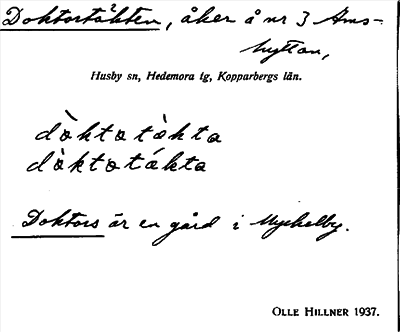 Doktortäkten, åker å nr 3 Ams-
hyttan,
Husby sn, Hedemora tg, Kopparbergs län.
dòktotàkta
dòktotákta
Doktors är en gård i Myckelby.
OLLE HILLNER 1937.